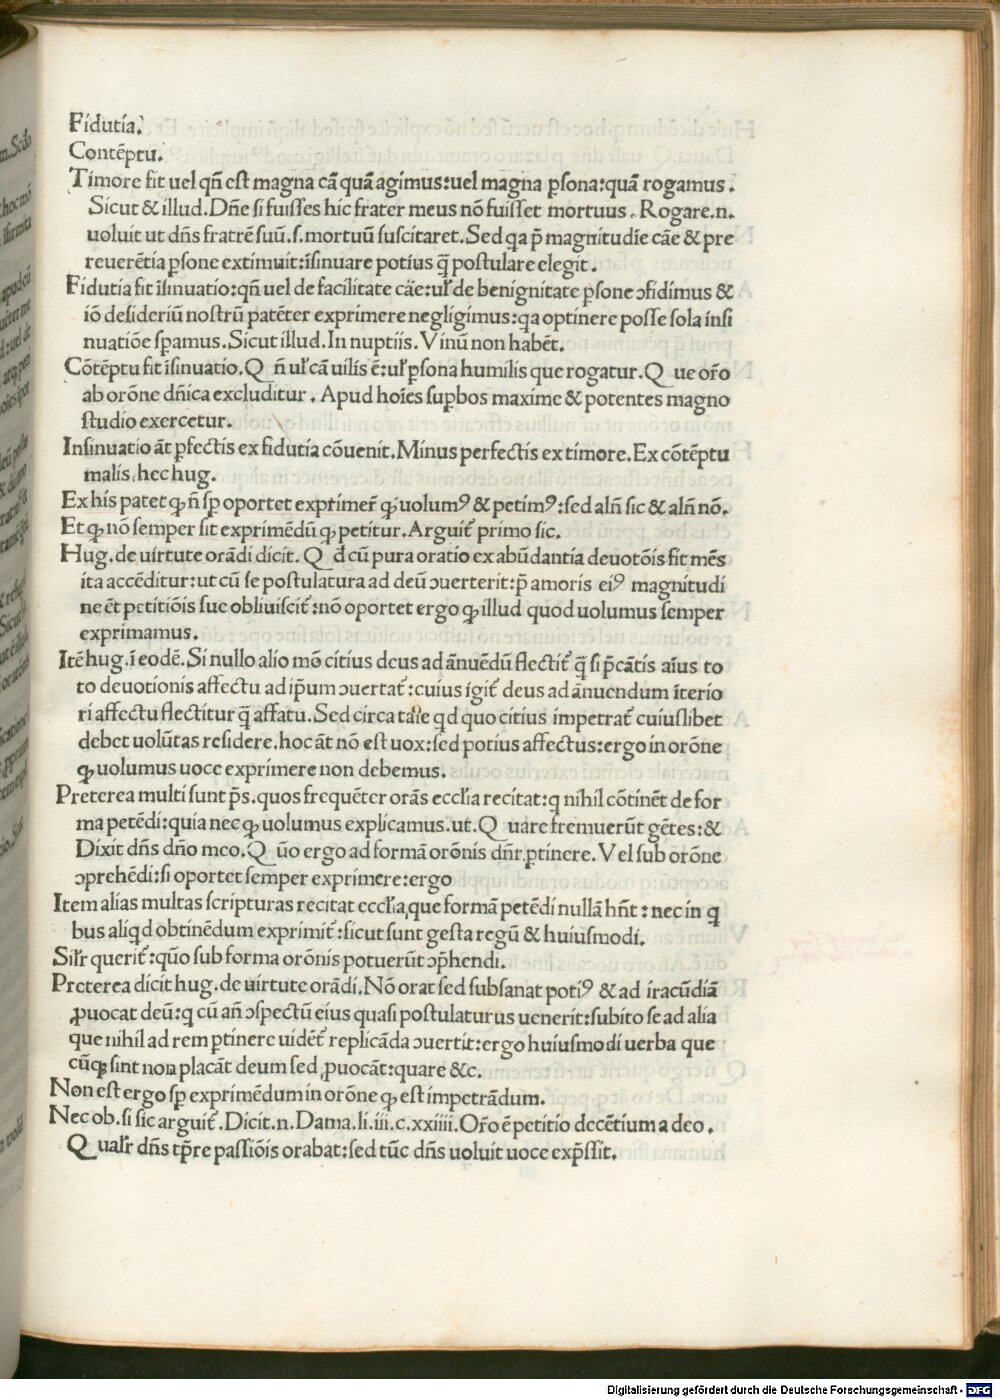 Fidutia.
Contēptu.
Timore fit uel qn̄ est magna cā quā agimus:uel magna ꝑsona:quā rogamus.
Sicut & illud.Dn̄e si fuisses hic frater meus nō fuisset mortuus. Rogare.n.
uoluit ut dn̄s fratrē suū.s.mortuū suscitaret.Sed qa p̄ magnitudīe cāe & pre
reuerētia ꝑsone extimuit:īsinuare potius q̄̄ postulare elegit.
Fidutia fit īsinuatio:qn̄ uel de facilitate cāe:ul̄r de benignitate ꝑsone ↄfidimus &
iō desideriū nostrū patēter exprimere negligimus:qa optinere posse sola insi
nuatiōe sꝑamus.Sicut illud.In nuptiis.Vinū non habēt.
Cōtēptu fit īsinuatio.Q n̄ ul̄r cā uilis ē:ul̄r ꝑsona humilis que rogatur.Q ue or̄o
ab orōne dn̄ica excluditur. Apud hoīes suꝑbos maxime & potentes magno
studio exercetur.
Insinuatio āt ꝑfectis ex fidutia cōuenit.Minus perfectis ex timore.Ex cōtēptu
malis.hec hug.
Ex his patet ꝙ n̄ sꝑ oportet exprimer̄ ꝙ uolumꝰ & petimꝰ:sed aln̄ sic & aln̄ nō.
Et ꝙ nō semper sit exprimēdū ꝙ petitur.Arguit᷑ primo sic.
Hug.de uirtute orādi dicit.Q d̄ cū pura oratio ex abūdantia deuotōis fit mēs
ita accēditur:ut cū se postulatura ad deū ↄuerterit:p̄ amoris eiꝰ magnitudi
ne ēt petitiōis sue obliuiscit᷑:nō oportet ergo ꝙ illud quod uolumus semper
exprimamus.
Itē hug.ī eodē.Si nullo alio mō citius deus ad ānuēdū flectit᷑ q̄̄ si p̄cātis aīus to
to deuotionis affectu ad ip̄um ↄuertat᷑:cuius igit᷑ deus ad ānuendum īterio
ri affectu flectitur q̄̄ affatu.Sed circa tale qd quo citius impetrat᷑ cuiuslibet
debet uolūtas residere.hoc āt nō est uox:sed potius affectus:ergo in orōne
ꝙ uolumus uoce exprimere non debemus.
Preterea multi sunt p̄s.quos frequēter orās eccl̄ia recitat:q nihil cōtinēt de for
ma petēdi:quia nec ꝙ uolumus explicamus.ut.Q uare fremuerūt gētes:&
Dixit dn̄s dn̄o meo.Q ūo ergo ad formā orōnis dn̄r ꝑtinere.Vel sub orōne
ↄprehēdi:si oportet semper exprimere:ergo
Item alias multas scripturas recitat eccl̄ia,que formā petēdi nullā hn̄t:nec in q
bus aliqd obtinēdum exprimit᷑:sicut sunt gesta regū & huiusmodi.
Sil̄r querit᷑:quō sub forma orōnis potuerūt ↄp̄hendi.
Preterea dicit hug.de uirtute orādi.Nō orat sed subsanat potiꝰ & ad iracūdiā
ꝓuocat deū:q cū an̄ ↄspectū eius quasi postulaturus uenerit:subito se ad alia
que nihil ad rem ꝑtinere uidēt᷑ replicāda ↄuertit:ergo huiusmodi uerba que
cūqꝫ sint non placāt deum sed ꝓuocāt:quare &c.
Non est ergo sꝑ exprimēdum in orōne ꝙ est impetrādum.
Nec ob.si sic arguit᷑.Dicit.n.Dama.li.iii.c.xxiiii.Or̄o ē petitio decētium a deo.
Q ual̄r dn̄s tp̄re passiōis orabat:sed tūc dn̄s uoluit uoce exp̄ssit.
Digitalisierung gefördert durch die Deutsche Forschungsgemeinschaft - DFG